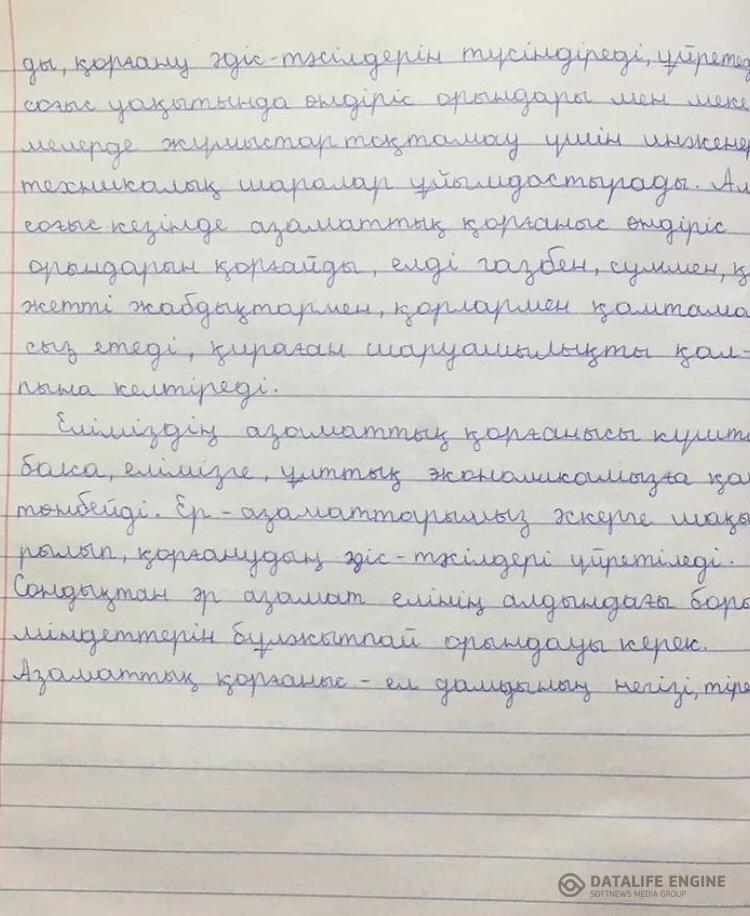 ды, қорғану әдіс-тәсілдерін түсіндіреді, үйретед
соғыс уақытында өндіріс орындары мен меке
мелерде жұмыстар тоқтамау үшін инженер
техникалық шаралар ұйымдастырады. Ал
соғыс кезінде азаматтық қорғаныс өндіріс
орындарын қорғайды, елді газбен, сумен, қа
жетті жабдықтармен, қорлармен қамтама
сыз етеді, қираған шаруашылықты қал-
пына келтіреді.
Еліміздің азаматтық қорғанысы күшті
болса, елімізге, ұлттық экономикамызға қа
төнбейді. Ер-азаматтарымыз әскерге шақы
рылып, қорғанудың әдіс-тәсілдері үйретіледі.
Сондықтан әр азамат елінің алдындағы боры
міндеттерін бұлжытпай орындауы керек.
Азаматтық қорғаныс - ел дамуының негізі, тіре
DATALIFE ENGINE
SOFTNEWS MEDIA GROUP